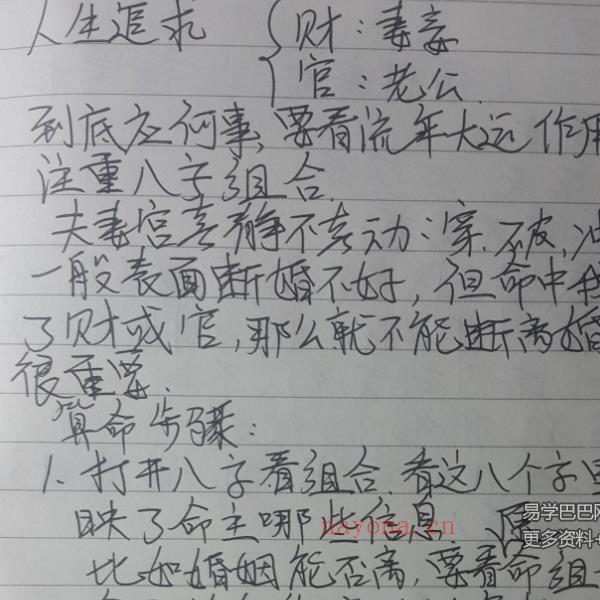 人生追求 { 财：妻妾
官：老公.
到底应何事、要看流年大运作用
注重八字组合.
夫妻宫喜静不喜动：穿、破,冲
一般表面断婚不好,但命中
了财或官,那么就不能断离婚
很重要.
算命步骤：
1、打开八字看组合.看这八个字里
映了命主哪些信息.
比如婚姻能否离,要看命组
nayona.cn
易学巴巴网
更多资料